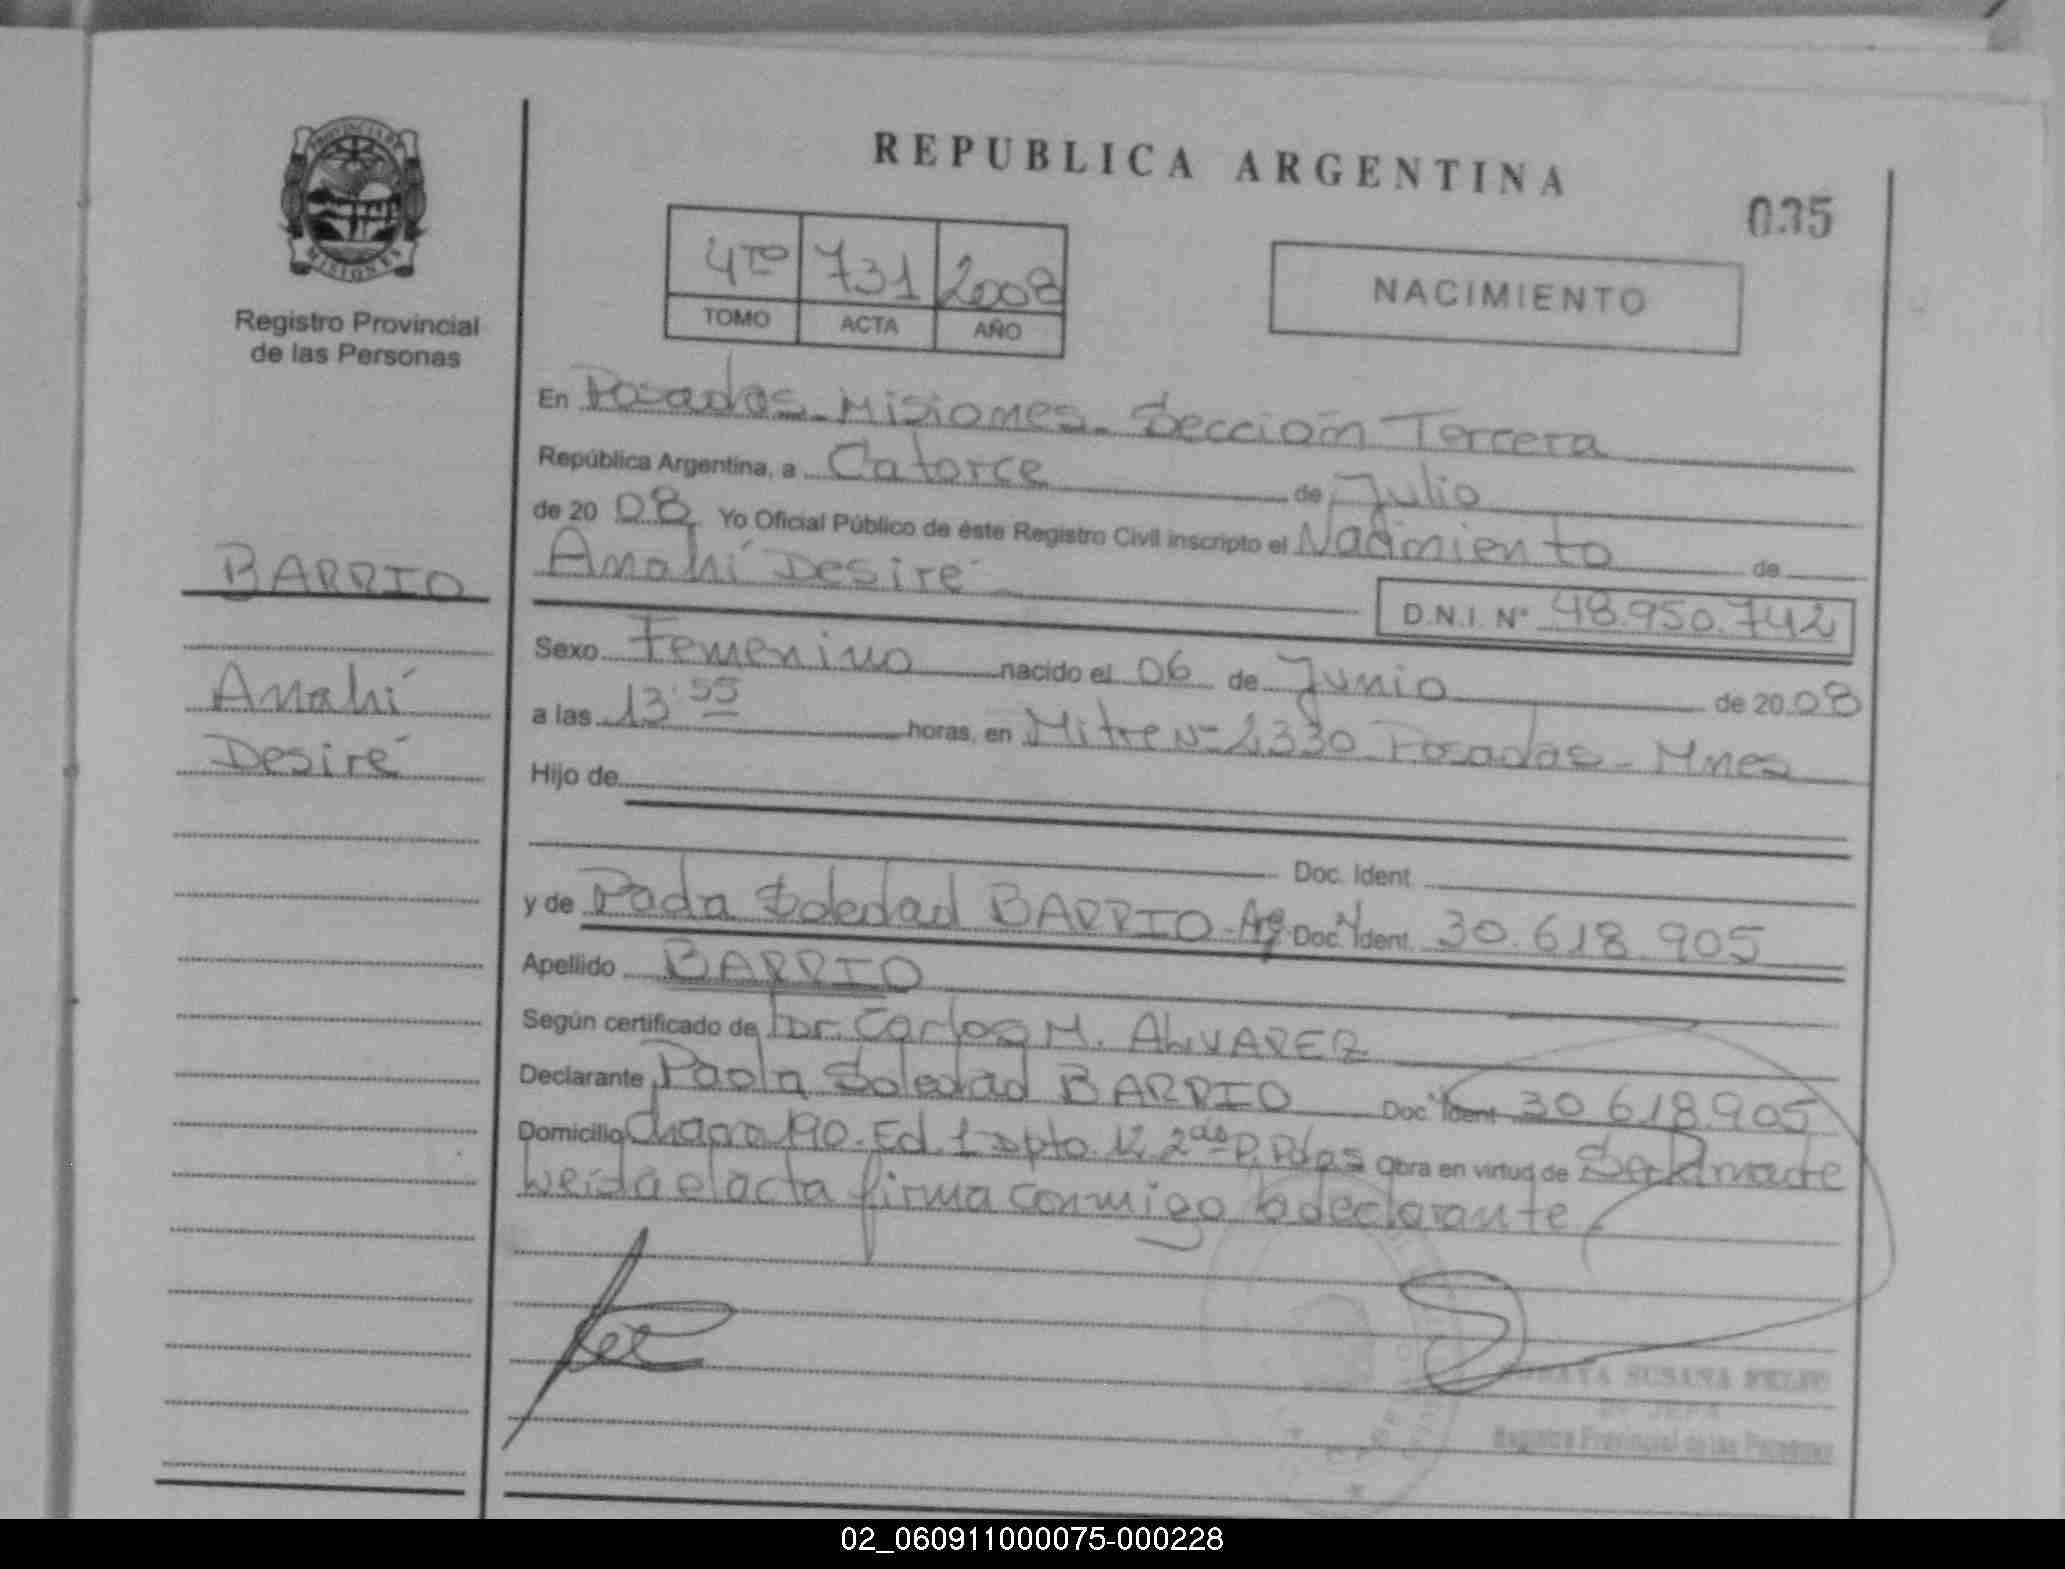 REPUBLICA ARGENTINA
035
PROVINCIA DE
MISIONES
Registro Provincial
de las Personas
4TO 731 2008
TOMO ACTA AÑO
NACIMIENTO
En Posadas - Misiones - Sección Tercera
República Argentina, a Catorce de Julio
de 20 08 Yo Oficial Público de éste Registro Civil inscripto el Nacimiento de
Anahí Desiré
D.N.I. Nº 48.950.742
BARRIO
Anahí
Desiré
Sexo Femenino nacido el 06 de Junio de 20 08
a las 13:55 horas, en Mitre Nº 2330 Posadas - Mnes
Hijo de
Doc. Ident.
y de Paola Soledad BARRIO - Arg. Doc. Ident. 30.618.905
Apellido BARRIO
Según certificado de Dr. Carlos M. ALVAREZ
Declarante Paola Soledad BARRIO Doc. Ident. 30.618.905
Domicilio Chacra 190. Ed. 1 Dpto. 12 2do P. Pdas Obra en virtud de
Leida el acta firma conmigo la declarante
SUSANA
Registro Provincial de las Personas
02_060911000075-000228